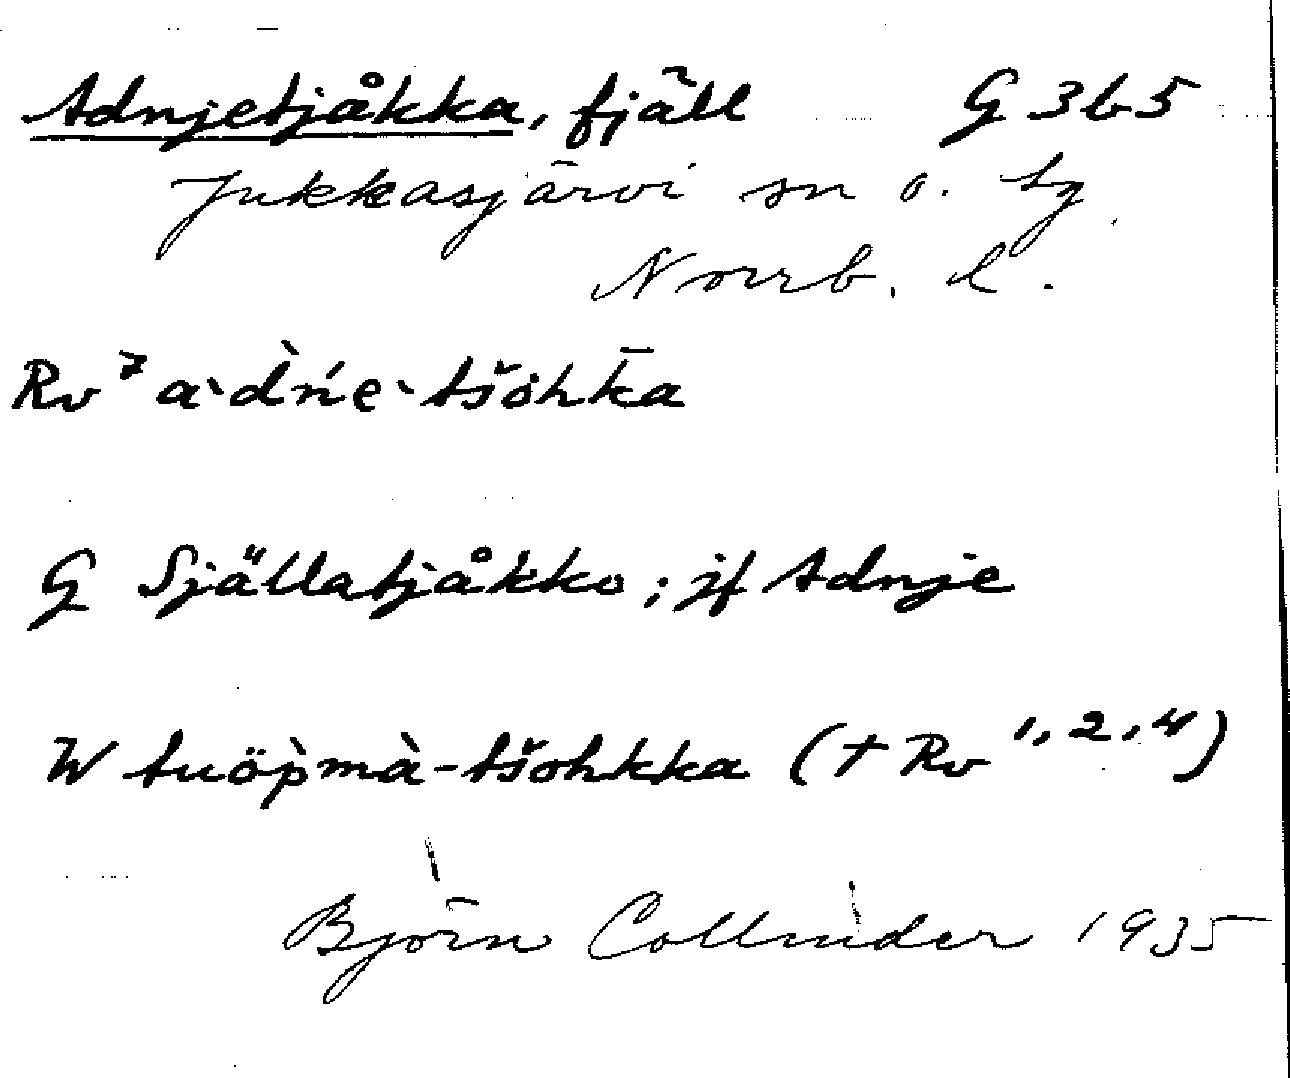 Adnjetjåkka, fjäll G 3b5
Jukkasjärvi sn o. tg
Norrb. l.
Rv⁷ a·d̀ńe·tšohk̄a
G Själlatjåkko; jf Adnje
W tuöp̀mà-tšohkka (+ Rv¹,²,⁴)
Björn Collinder 1935